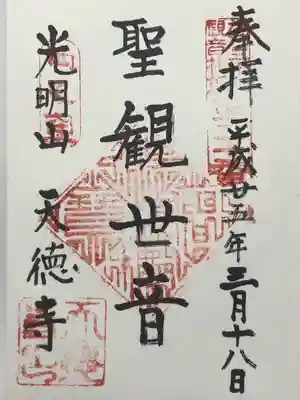 奉拝
平成廿五年三月十八日
聖観世音
光明山 天徳寺